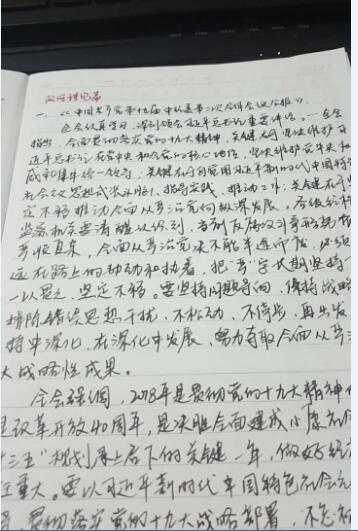 政治理论篇
一、《中国共产党第十九届中纪委第二次全体会议公报》。
全会认真学习、深刻领会习近平总书记重要讲话。一致
指出，全面贯彻落实党的十九大精神，关键在于坚决维护习
近平总书记在党中央和全党的核心地位，坚决维护党中央权
威和集中统一领导；关键在于用习近平新时代中国特
社会主义思想武装头脑、指导实践、推动工作；关键在于坚
定不移推动全面从严治党向纵深发展。各级纪
监察机关要清醒认识到，当前反腐败斗争形势
严峻复杂，全面从严治党决不能半途而废，必须
远在路上的韧劲和执着，把"严"字长期坚持
一以贯之、坚定不移。要坚持问题导向，保持战略
排除错误思想干扰，不松劲、不停步、再出发
持中深化、在深化中发展，努力夺取全面从严治
大战略性成果。
全会强调，2018年是贯彻党的十九大精神
是改革开放40周年，是决胜全面建成小康社会
十三五"规划承上启下的关键一年，做好纪
任重大。要以习近平新时代中国特色社会主
贯彻落实党的十九大战略部署，不忘初